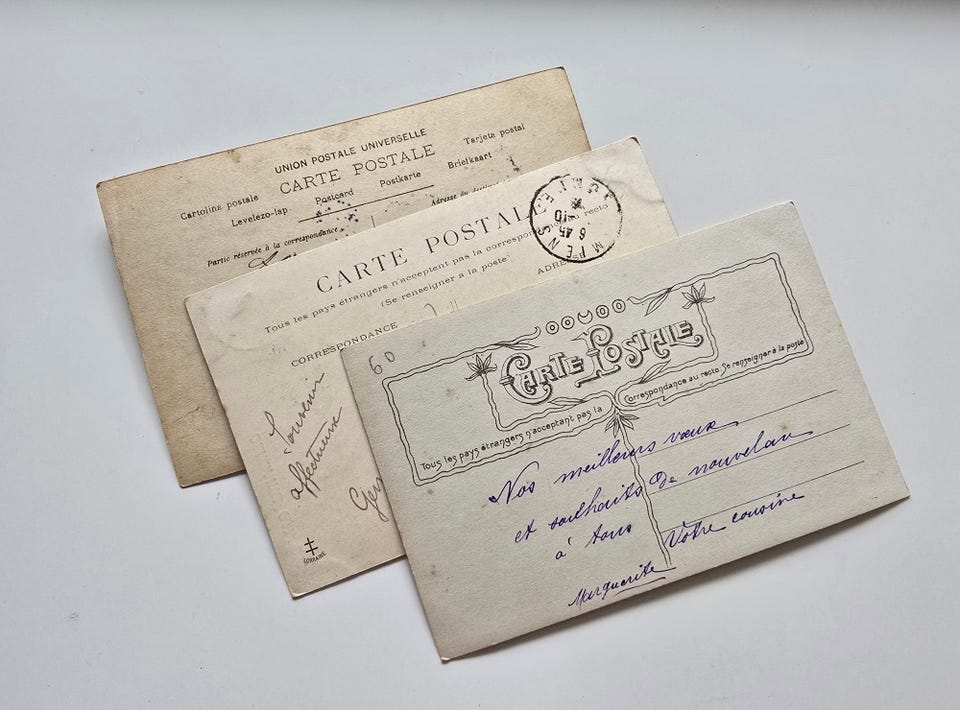 UNION POSTALE UNIVERSELLE
CARTE POSTALE
Tarjeta postal
Cartolina postale
Postcard
Postkarte
Briefkaart
Levelezo-lap
Partie réservée à la correspondance
Adresse du
CARTE POSTALE
Tous les pays étrangers n'acceptent pas la correspondance au recto
(Se renseigner à la poste)
CORRESPONDANCE
Souvenir
affectueux
LORRAINE
6 45
10
60
CARTE POSTALE
Tous les pays étrangers n'acceptant pas la
Correspondance au recto Se renseigner à la poste
Nos meilleurs vœux
et souhaits de nouvel an
à tous Votre cousine
Marguerite